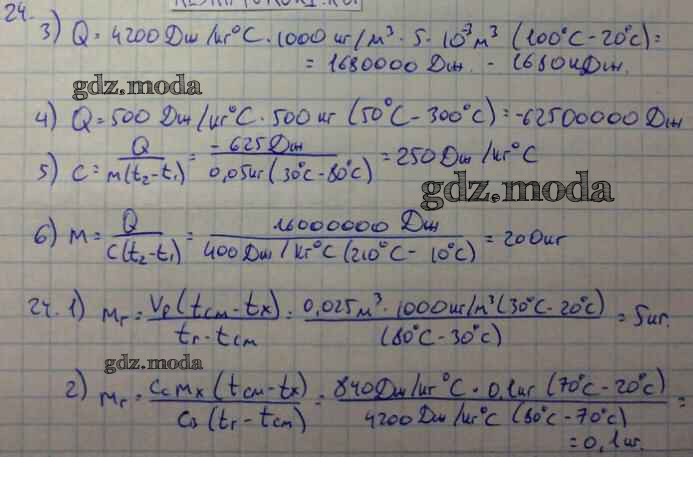 24.
3) Q = 4200 Дж/кг°C · 1000 кг/м³ · 5 · 10⁻³ м³ (100°C - 20°C) =
= 1680000 Дж. - 1680 кДж.
gdz.moda
4) Q = 500 Дж/кг°C · 500 кг (50°C - 300°C) = -62500000 Дж
5) C = Q / m(t₂-t₁) = -625 Дж / 0,05 кг (30°C - 80°C) = 250 Дж/кг°C
gdz.moda
6) m = Q / C(t₂-t₁) = 16000000 Дж / 400 Дж/кг°C (210°C - 10°C) = 200 кг
24. 1) mг = Vρ(tсм - tх) / tг - tсм = 0,025 м³ · 1000 кг/м³ (30°C - 20°C) / (80°C - 30°C) = 5 кг.
gdz.moda
2) mг = Cс mх (tсм - tх) / Cв (tг - tсм) = 840 Дж/кг°C · 0,1 кг (70°C - 20°C) / 4200 Дж/кг°C (80°C - 70°C) =
= 0,1 кг.